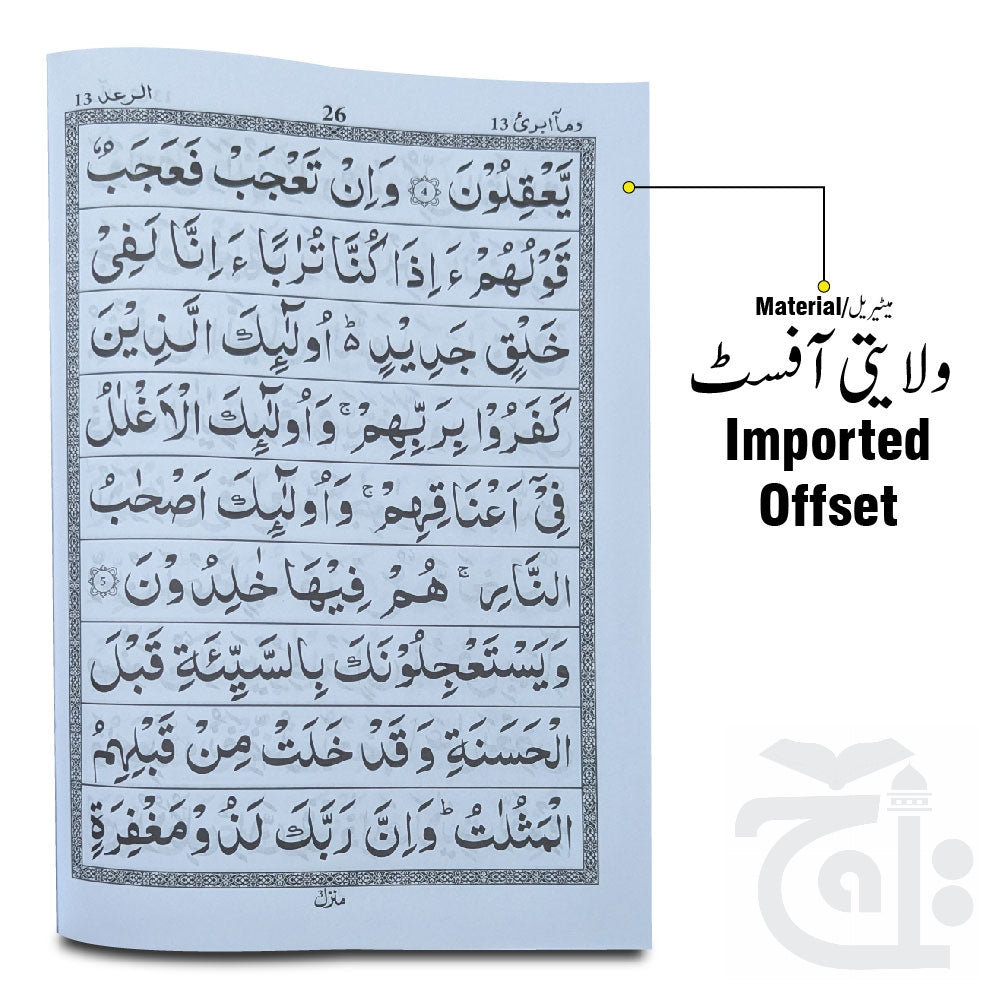 الرعد 13
26
ومآ ابرئ 13
يَّعْقِلُوْنَ 4 وَاِنْ تَعْجَبْ فَعَجَبٌ
قَوْلُهُمْ ءَ اِذَا كُنَّا تُرٰبًا ءَ اِنَّا لَفِىْ
خَلْقٍ جَدِيْدٍ ؕ اُولٰٓئِكَ الَّذِيْنَ
كَفَرُوْا بِرَبِّهِمْ ۚ وَاُولٰٓئِكَ الْاَغْلٰلُ
فِىْٓ اَعْنَاقِهِمْ ۚ وَاُولٰٓئِكَ اَصْحٰبُ
النَّارِ ۚ هُمْ فِيْهَا خٰلِدُوْنَ 5
وَيَسْتَعْجِلُوْنَكَ بِالسَّيِّئَةِ قَبْلَ
الْحَسَنَةِ وَقَدْ خَلَتْ مِنْ قَبْلِهِمُ
الْمَثُلٰتُ ؕ وَاِنَّ رَبَّكَ لَذُوْ مَغْفِرَةٍ
منزل ٣
Material/میٹیریل
ولایتی آفسٹ
Imported
Offset